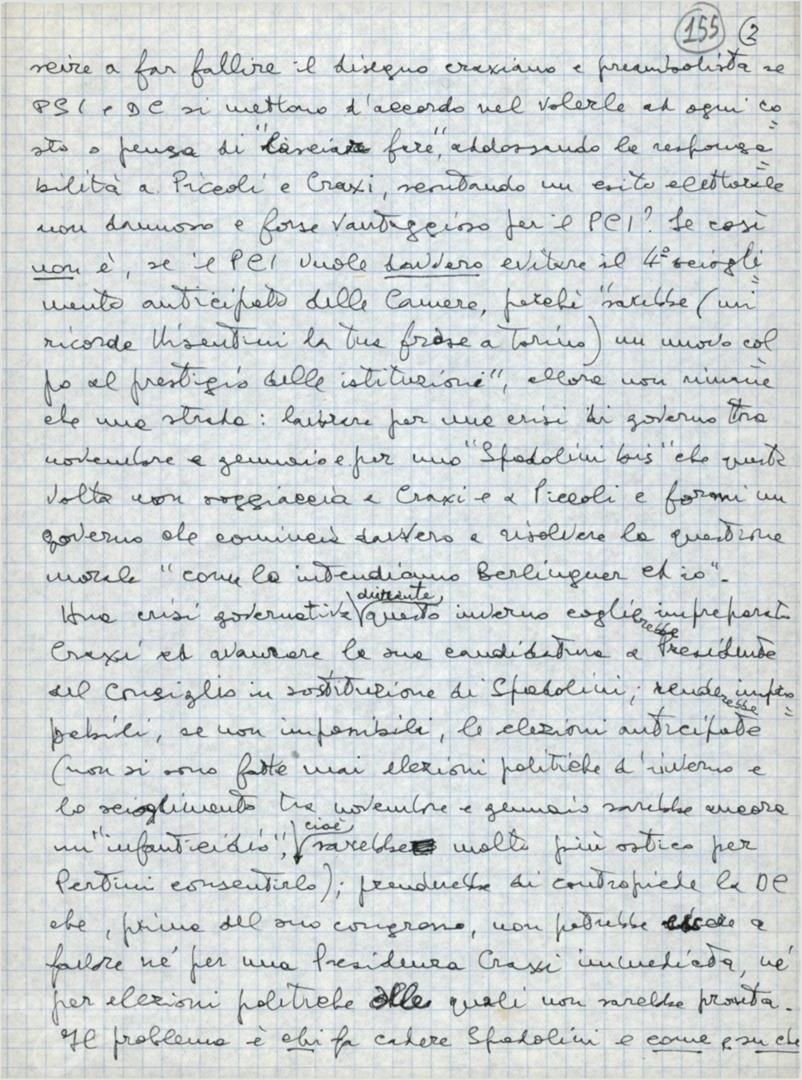 155 2
scire a far fallire il disegno craxiano e preambolista se
PSI e DC si mettono d'accordo nel volerle ad ogni co=
sto o pensa di "lasciar fare", addossando la responsa=
bilità a Piccoli e Craxi, scontando un esito elettorale
non dannoso e forse vantaggioso per il PCI? Se così
non è, se il PCI vuole davvero evitare il 4º sciogli=
mento anticipato delle Camere, perché "sarebbe (mi
ricorda Visentini la tua frase a Torino) un nuovo col=
po al prestigio delle istituzioni", allora non rimane
che una strada: lavorare per una crisi di governo tra
novembre e gennaio e per uno "Spadolini bis" che questa
volta non soggiaccia a Craxi e a Piccoli e formi un
governo che cominci davvero a risolvere la questione
morale "come la intendiamo Berlinguer ed io".
Una crisi governativa durante questo inverno coglierebbe impreparato
Craxi ad avanzare la sua candidatura a Presidente
del Consiglio in sostituzione di Spadolini; renderebbe impro=
babili, se non impossibili, le elezioni anticipate
(non si sono fatte mai elezioni politiche d'inverno e
lo scioglimento tra novembre e gennaio sarebbe ancora
un "infanticidio", cioè sarebbe molto più ostico per
Pertini consentirlo); prenderebbe di contropiede la DC
che, prima del suo congresso, non potrebbe essere a
favore né per una Presidenza Craxi immediata, né
per elezioni politiche alle quali non sarebbe pronta.
Il problema è chi fa cadere Spadolini e come e su che